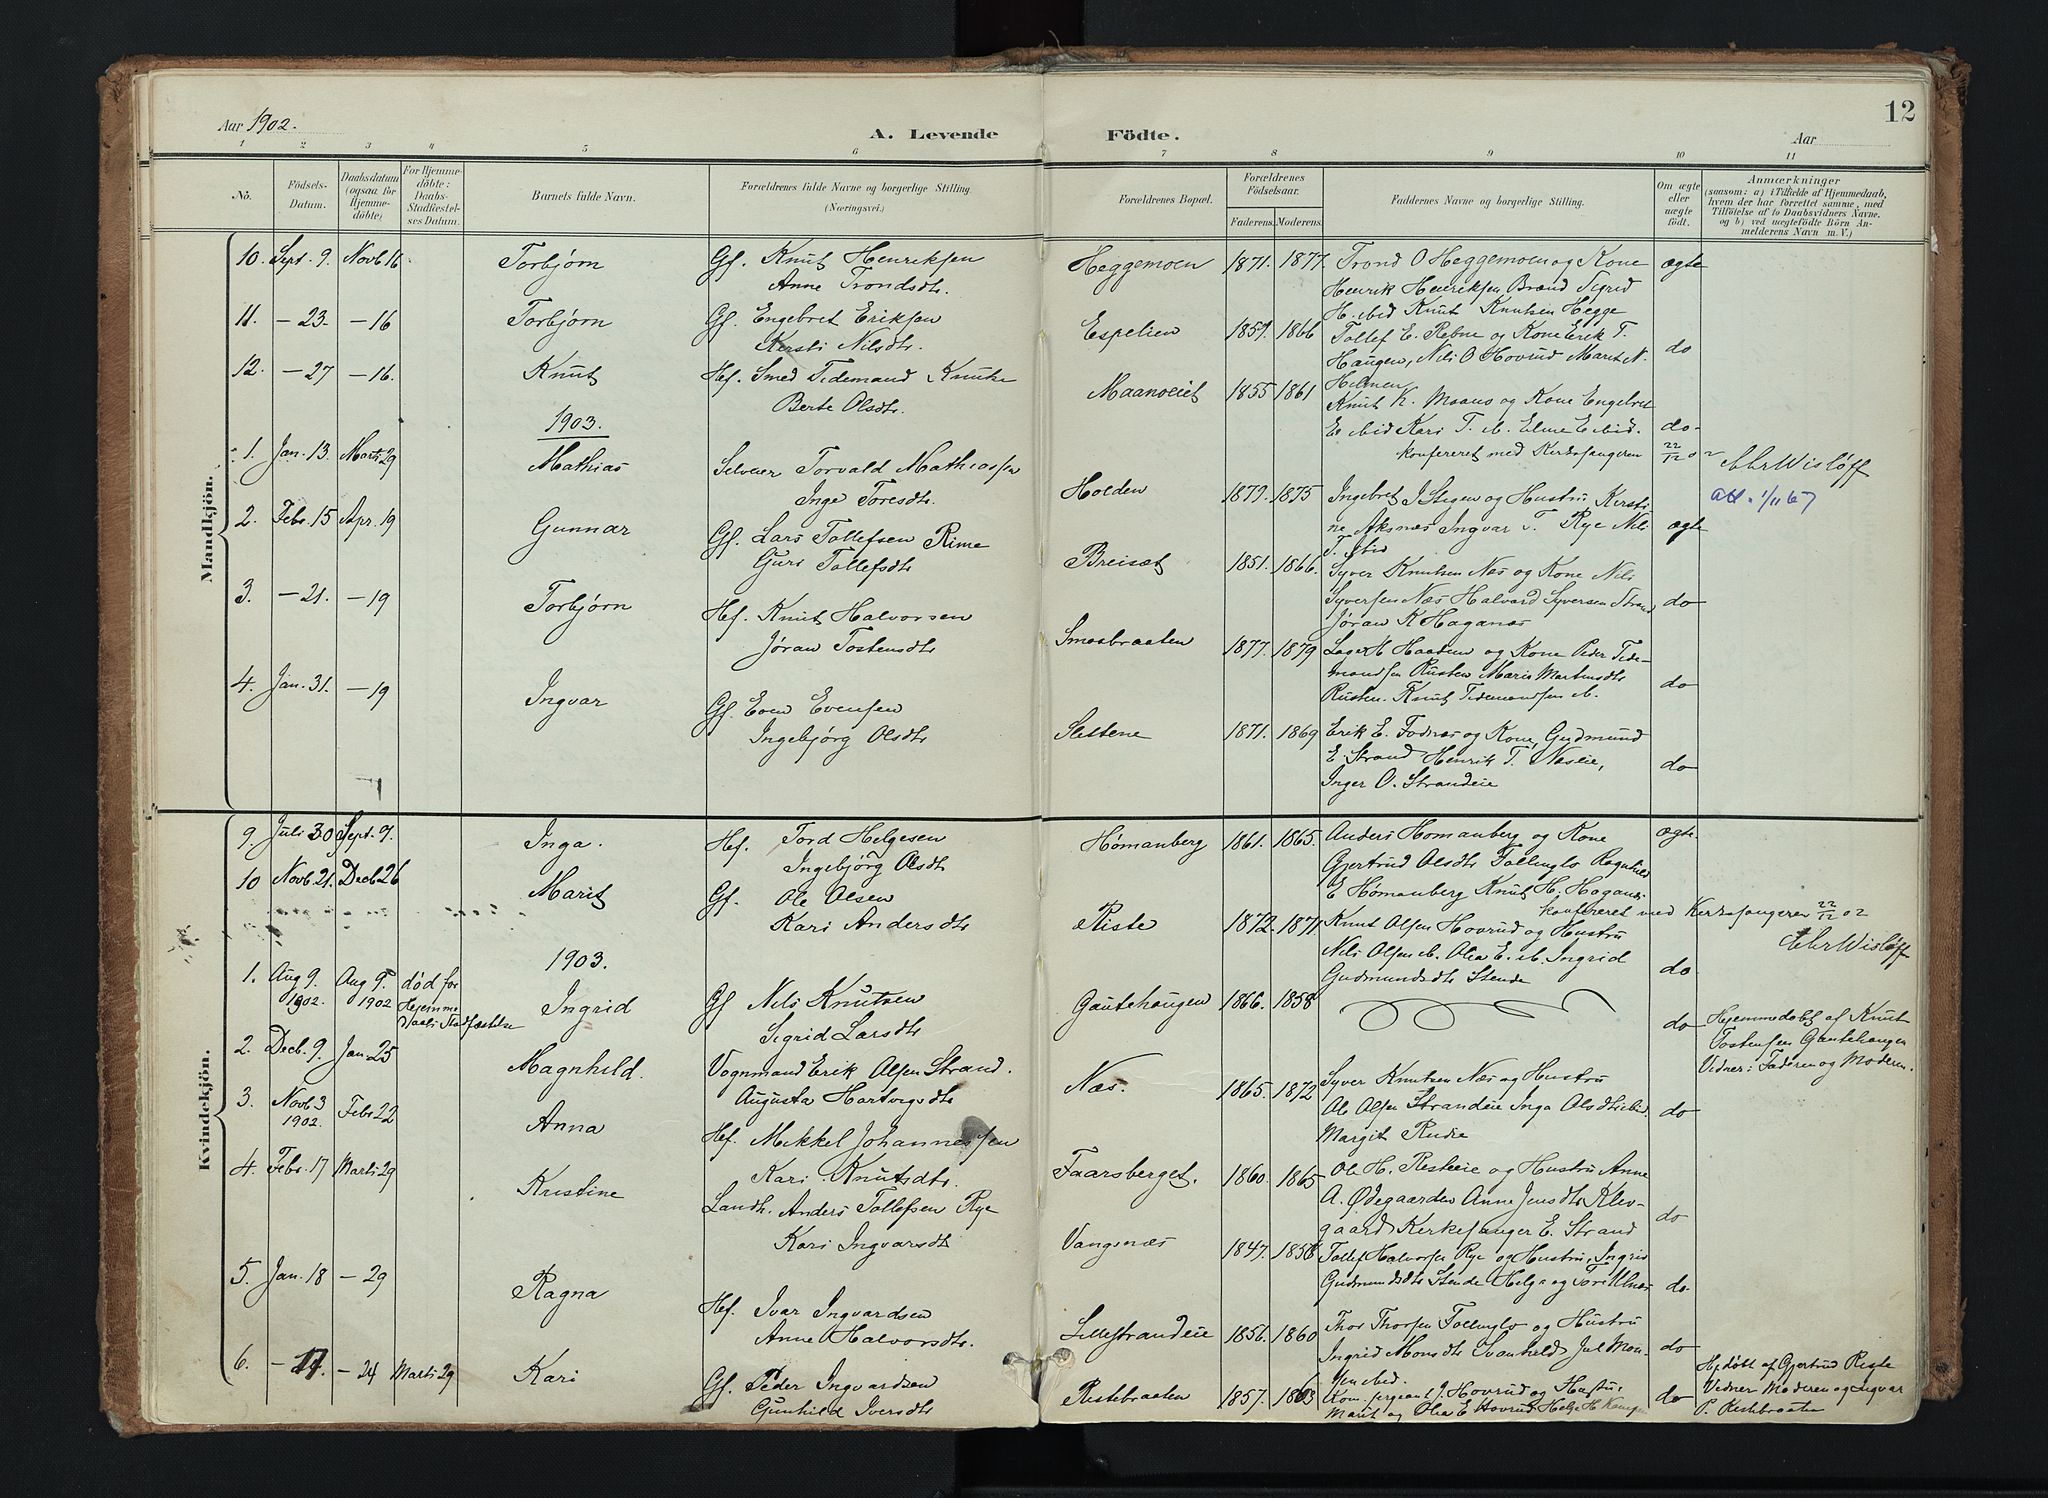 Aar 1902.
A. Levende Födte.
Aar
12
1 2 3 4 5 6 7 8 9 10 11
No.
Födsels-Datum.
Daabsdatum (ogsaa for Hjemmedöbte)
For Hjemmedöbte: Daabs-Stadfæstelses Datum.
Barnets fulde Navn.
Forældrenes fulde Navne og borgerlige Stilling. (Næringsvei.)
Forældrenes Bopæl.
Forældrenes Födselsaar.
Faderens. Moderens.
Faddernes Navne og borgerlige Stilling.
Om ægte eller uægte födt.
Anmærkninger
(saasom: a) i Tilfælde af Hjemmedaab, hvem der har forrettet samme, med Tilföielse af to Daabsvidners Navne, og b) ved uægtefödte Börn Anmelderens Navn m. V.)
Mandkjön.
10. Sept. 9. Novb 16 Torbjørn Gf. Knut Henriksen
Anne Trondsdtr.
Heggemoen 1871. 1877. Trond O Heggemoen og Kone
Henrik Henriksen Brænd Sigrid
H. ibid Knut Knutsen Hegge
ægte
11. – 23. – 16 Torbjørn Gf. Engebret Eriksen
Kersti Nilsdtr.
Espelien 1857. 1866 Tollef E. Rebne og Kone Erik T.
Haugen, Nils O Hovrud Marit N.
Hilmen
do
12. – 27 – 16. Knut Hf. Smed Tidemand Knutse
Berte Olsdtr.
Maanoeiet 1855 1861 Knut K. Maano og Kone Engebret
E. ibid Kari T. ib. Elme E ibid.
do
konfereret med Kirkesangeren 22/12 02 Chr Wisløff
1903.
1. Jan. 13. Marti 29 Mathias Selveier Torvald Mathiassen
Inge Toresdtr.
Holden 1879. 1875 Ingebret J Stegen og Hustru Kersti
ne Aksnæs Ingvar T. Rye Nils
T. ibid
ægte
Att. 1/11 67
2. Febr. 15 Apr. 19 Gunnar Gf. Lars Tollefsen Rime
Guri Tollefsdtr
Breiset 1851. 1866. Syver Knutsen Næs og Kone Nils
Syversen Næs Halvard Syversen Strand
Jøran K Haganæs
do
3. – 21. – 19 Torbjørn Hf. Knut Halvorsen
Jøran Tostensdtr
Smosbraaten 1877. 1879 Lage H Haadem og Kone Peder Tide-
mandsen Rusten Maris Martinsdtr
Rusten. Knut Tidemandsen ib.
do
4. Jan. 31. – 19 Ingvar Gf. Even Evensen
Ingebjørg Olsdtr
Slettene 1871. 1869 Erik E. Fodnæs og Kone, Gudmund
E Strand Henrik T. Næseie,
Inger O. Strandeie
do
Kvindekjön.
9. Juli 30 Sept. 7. Inga. Hf. Tord Helgesen
Ingebjørg Olsdtr
Hømanberg 1861. 1865. Anders Homanberg og Kone
Gjertrud Olsdtr Tollinglo Ragnhild
E Hømanberg Knut H. Hagana.
ægte.
10 Novb. 21. Decb. 26 Marit Gf. Ole Olsen
Kari Andersdtr
konfereret med Kirkesangeren 22/12 02
Chr Wisløff
Riste 1872. 1871. Knut Olsen Hovrud og Hustru
Nils Olsen ib. Olea E. ib. Ingrid
Gudmundsdtr Stende
do
1903.
1. Aug 9. 1902. Aug 9. 1902 død før Hjemmedaabs Stadfæstelse Ingrid Gf Nils Knutsen
Sigrid Larsdtr
Gautehaugen 1866. 1858
do
Hjemmedøbt af Knut
Tostensen Gautehaugen
Vidner: Faderen og Moderen.
2. Decb. 9. Jan 25 Magnhild. Vognmand Erik Olsen Strand.
Augusta Hartvigsdtr
Næs. 1865. 1872 Syver Knutsen Næs og Hustru
Ole Olsen Strandeie Inga Olsdtr ibid.
Margit Rudie
do
3. Novb 3 1902. Febr 22 Anna Hf. Mikkel Johannessen
Kari Knutsdtr.
Faarsberget. 1860. 1865 Ole H. Risteeie og Hustru Anne
A. Ødegaarden Anne Jensdtr Klev-
gaard Kirkesanger E. Strand
do
4. Febr. 17 Marti 29 Kristine Landh. Anders Tollefsen Rye
Kari Ingvarsdtr
Vangsnæs 1847. 1858 Tollef Halvorsen Rye og Hustru, Ingrid
Gudmundsdtr Stende Helge og Tori Ulnæs
do.
5. Jan. 18 – 29 Ragna Hf. Ivar Ingvardsen
Anne Halvorsdtr.
Lillestrandeie 1856. 1860 Thor Thorsen Tollinglo og Hustru
Ingrid Monsdtr Svanhild Jul Mon-
sen ibid.
do
6. – 17. – 24 Marti 29 Kari Gf. Peder Ingvardsen
Gunhild Iversdtr
Ristebraaten 1857. 1863 Kom. sergeant J. Hovrud og Hustru,
Marit og Olea E Hovrud Helge H Haugen
do
Hj. døbt af Gjertrud Riste
Vidner Moderen og Ingvar
P. Ristebraaten